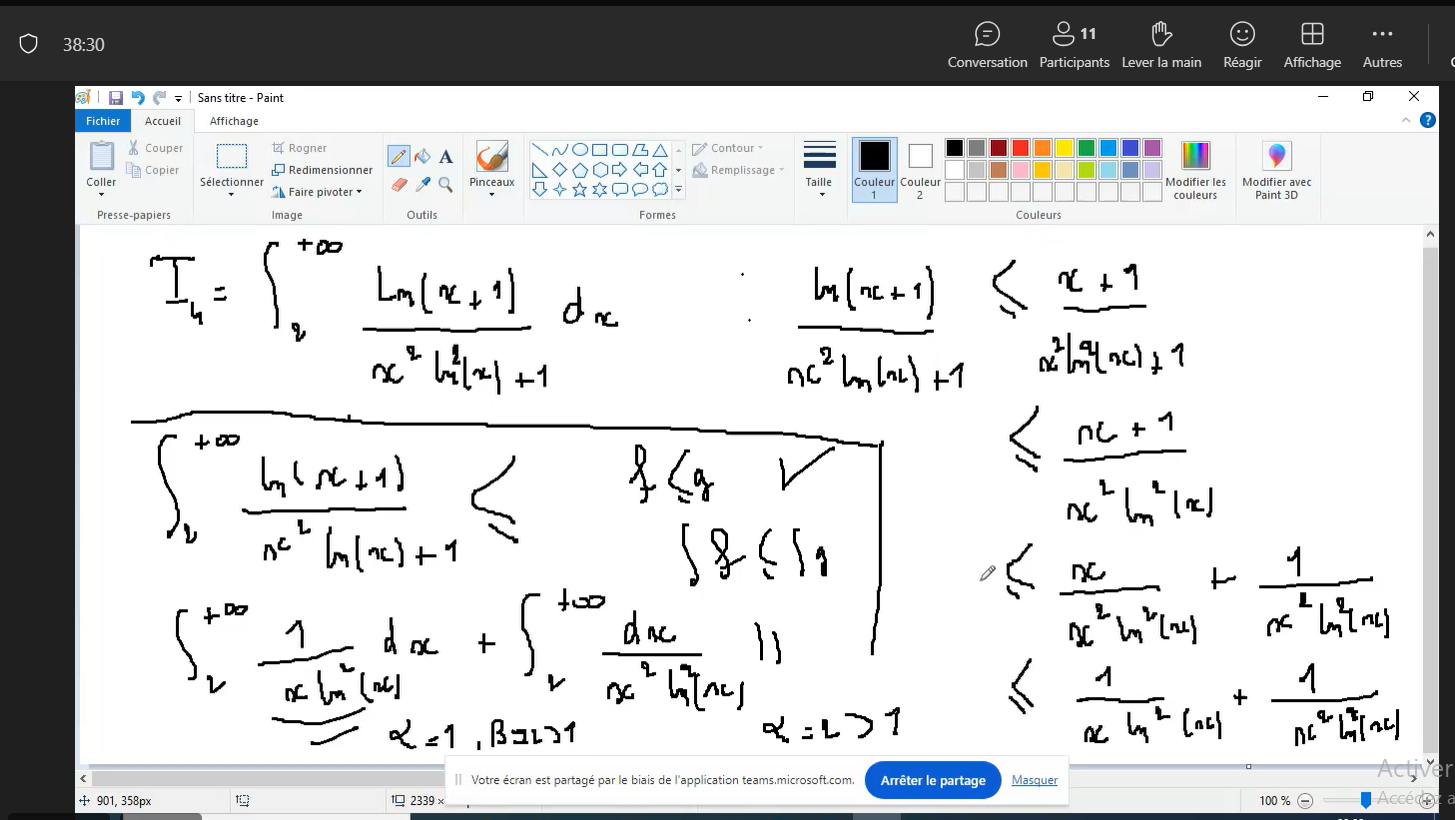 38:30
Conversation
11
Participants
Lever la main
Réagir
Affichage
Autres
Sans titre - Paint
Fichier Accueil Affichage
Coller
Couper
Copier
Presse-papiers
Sélectionner
Rogner
Redimensionner
Faire pivoter
Image
A
Outils
Pinceaux
Contour
Remplissage
Formes
Taille
Couleur 1
Couleur 2
Modifier les couleurs
Couleurs
Modifier avec Paint 3D
I₄ = ∫₂^{+∞} ln(x+1) / (x² ln²(x) + 1) dx : ln(x+1) / (x² ln(x) + 1) ≤ (x+1) / (x² ln²(x) + 1)
≤ (x+1) / (x² ln²(x))
∫₂^{+∞} ln(x+1) / (x² ln(x) + 1) ≤ f ≤ g ✓
∫f ≤ ∫g
≤ x / (x² ln²(x)) + 1 / (x² ln²(x))
∫₂^{+∞} 1 / (x ln²(x)) dx + ∫₂^{+∞} dx / (x² ln²(x))
≤ 1 / (x ln²(x)) + 1 / (x² ln²(x))
α = 1, β = 2 > 1 α = 2 > 1
Votre écran est partagé par le biais de l'application teams.microsoft.com.
Arrêter le partage
Masquer
901, 358px
2339 ×
100 %
Activer
Accédez a